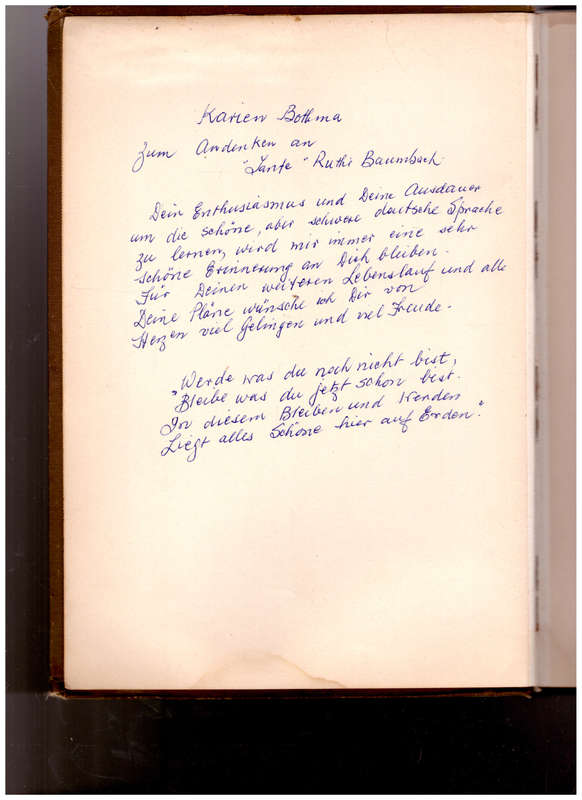 Karien Bothma
Zum Andenken an
"Tante" Ruthi Baumbach.
Dein Enthusiasmus und Deine Ausdauer
um die schöne, aber schwere deutsche Sprache
zu lernen, wird mir immer eine sehr
schöne Erinnerung an Dich bleiben.
Für Deinen weiteren Lebenslauf und alle
Deine Pläne wünsche ich Dir von
Herzen viel Gelingen und viel Freude.
"Werde was du noch nicht bist,
Bleibe was du jetzt schon bist.
In diesem Bleiben und Werden
Liegt alles Schöne hier auf Erden."